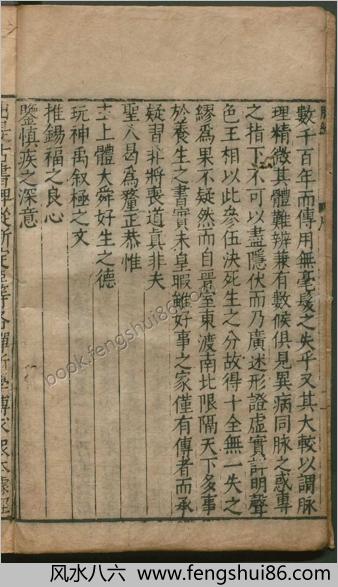 數千百年而傳用無毫髮之失乎又其大較以謂脉
理精微其體難辨兼有數候俱見異病同脉之惑專
之指下不可以盡隱伏而乃廣述形證虛實詳明聲
色王相以此參伍決死生之分故得十全無一失之
繆爲果不疑然而自晉室東渡南北限隔天下多事
於養生之書實未皇暇雖好事之家僅有傳者而承
疑習非將喪道真非夫
聖人曷爲釐正恭惟
主上體大舜好生之德
玩神禹叙極之文
推錫福之良心
鑒慎疾之深意
book.fengshui86.com
風水八六 www.fengshui86.com